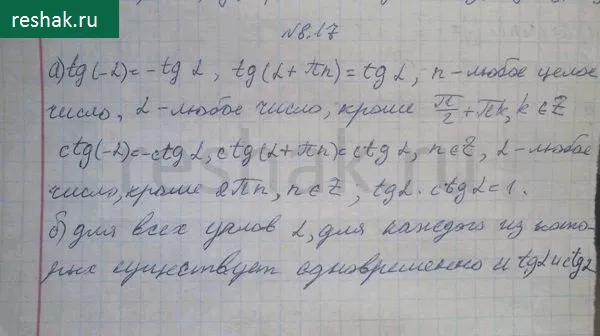 reshak.ru
№8.17
а) tg(-α)=-tg α, tg(α+πn)=tg α, n-любое целое
число, α-любое число, кроме π/2+πk, k∈Z
ctg(-α)=-ctg α, ctg(α+πn)=ctg α, n∈Z, α-любое
число, кроме 2πn, n∈Z, tgα·ctgα=1.
б) для всех углов α, для каждого из кото-
рых существует одновременно и tgα и ctgα